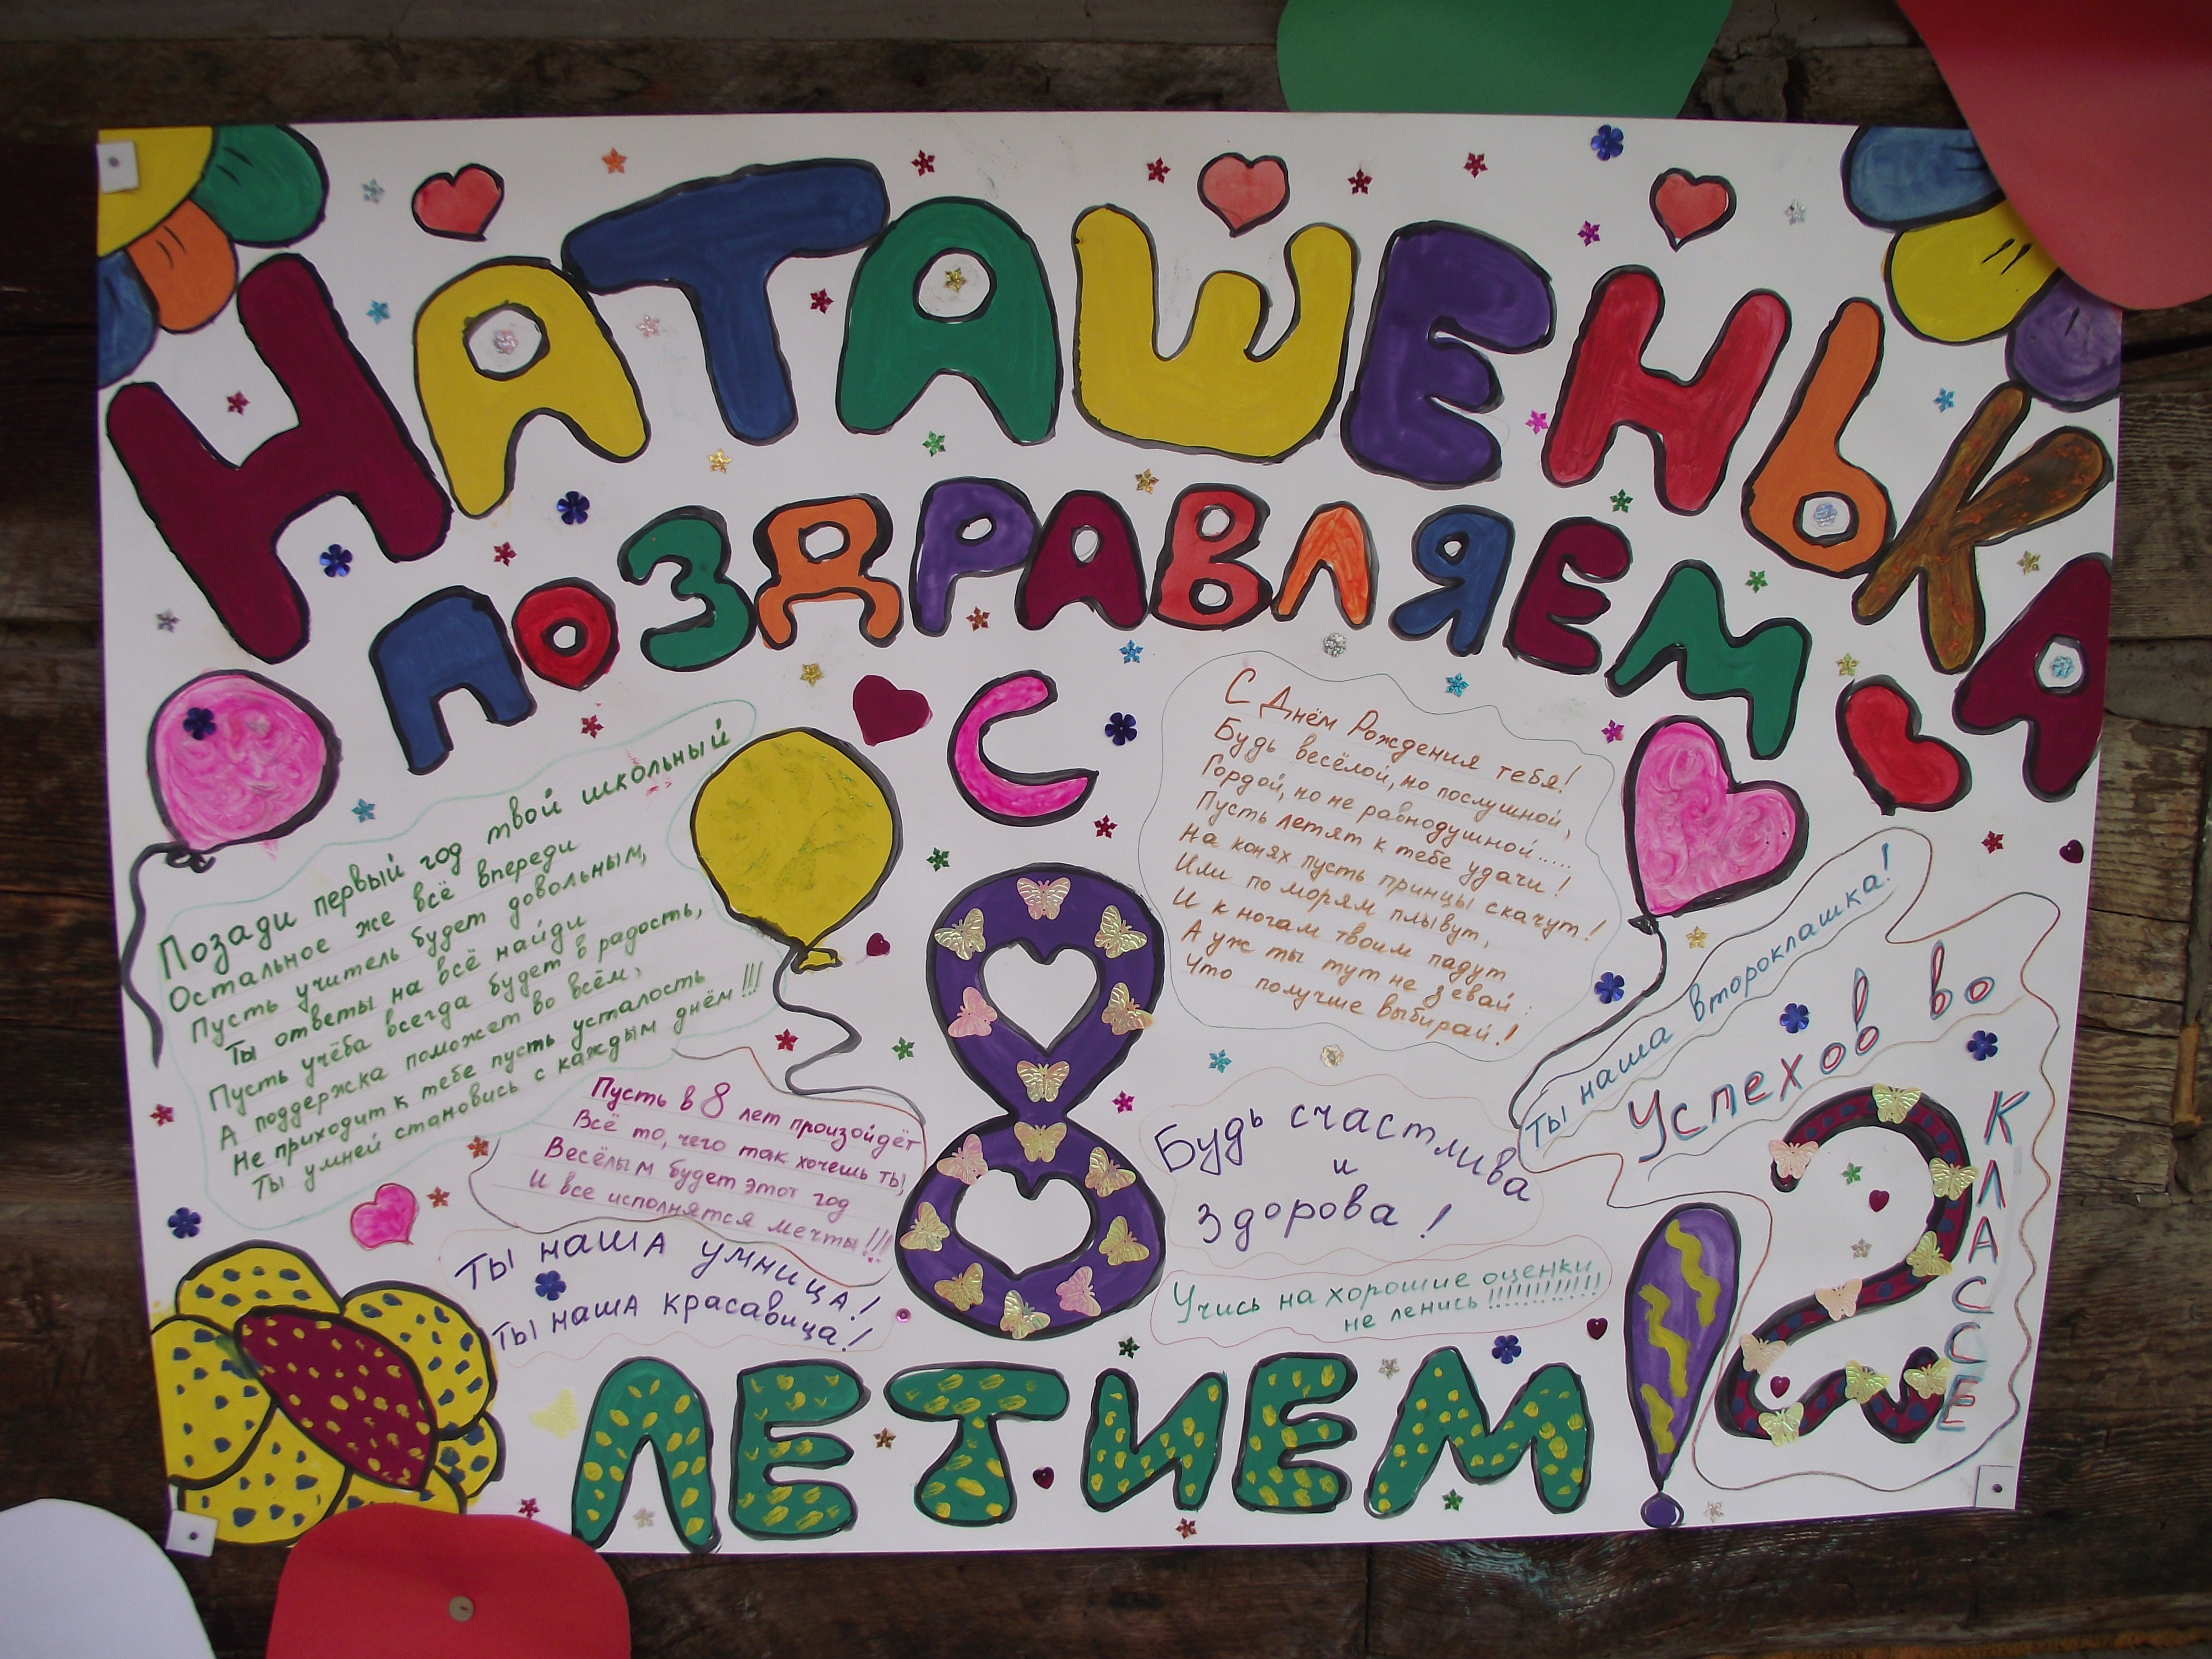 НАТАШЕНЬКА
ПОЗДРАВЛЯЕМ
С
8
ЛЕТИЕМ!
Позади первый год твой школьный
Остальное же всё впереди
Пусть учитель будет довольным,
Ты ответы на всё найди
Пусть учёба всегда будет в радость,
А поддержка поможет во всём,
Не приходит к тебе пусть усталость
Ты умней становись с каждым днём!!!
Пусть в 8 лет произойдёт
Всё то, чего так хочешь ты,
Весёлым будет этот год
И все исполнятся мечты!!!
Ты наша умница!
Ты наша красавица!
С Днём Рождения тебя!
Будь весёлой, но послушной,
Гордой, но не равнодушной.....
Пусть летят к тебе удачи!
На конях пусть принцы скачут!
Или по морям плывут,
И к ногам твоим падут
А уж ты тут не зевай:
Что получше выбирай!
Будь счастлива
и
здорова!
Учись на хорошие оценки
не ленись!!!!!!!!!!!!
Ты наша второклашка!
Успехов во
2
КЛАССЕ